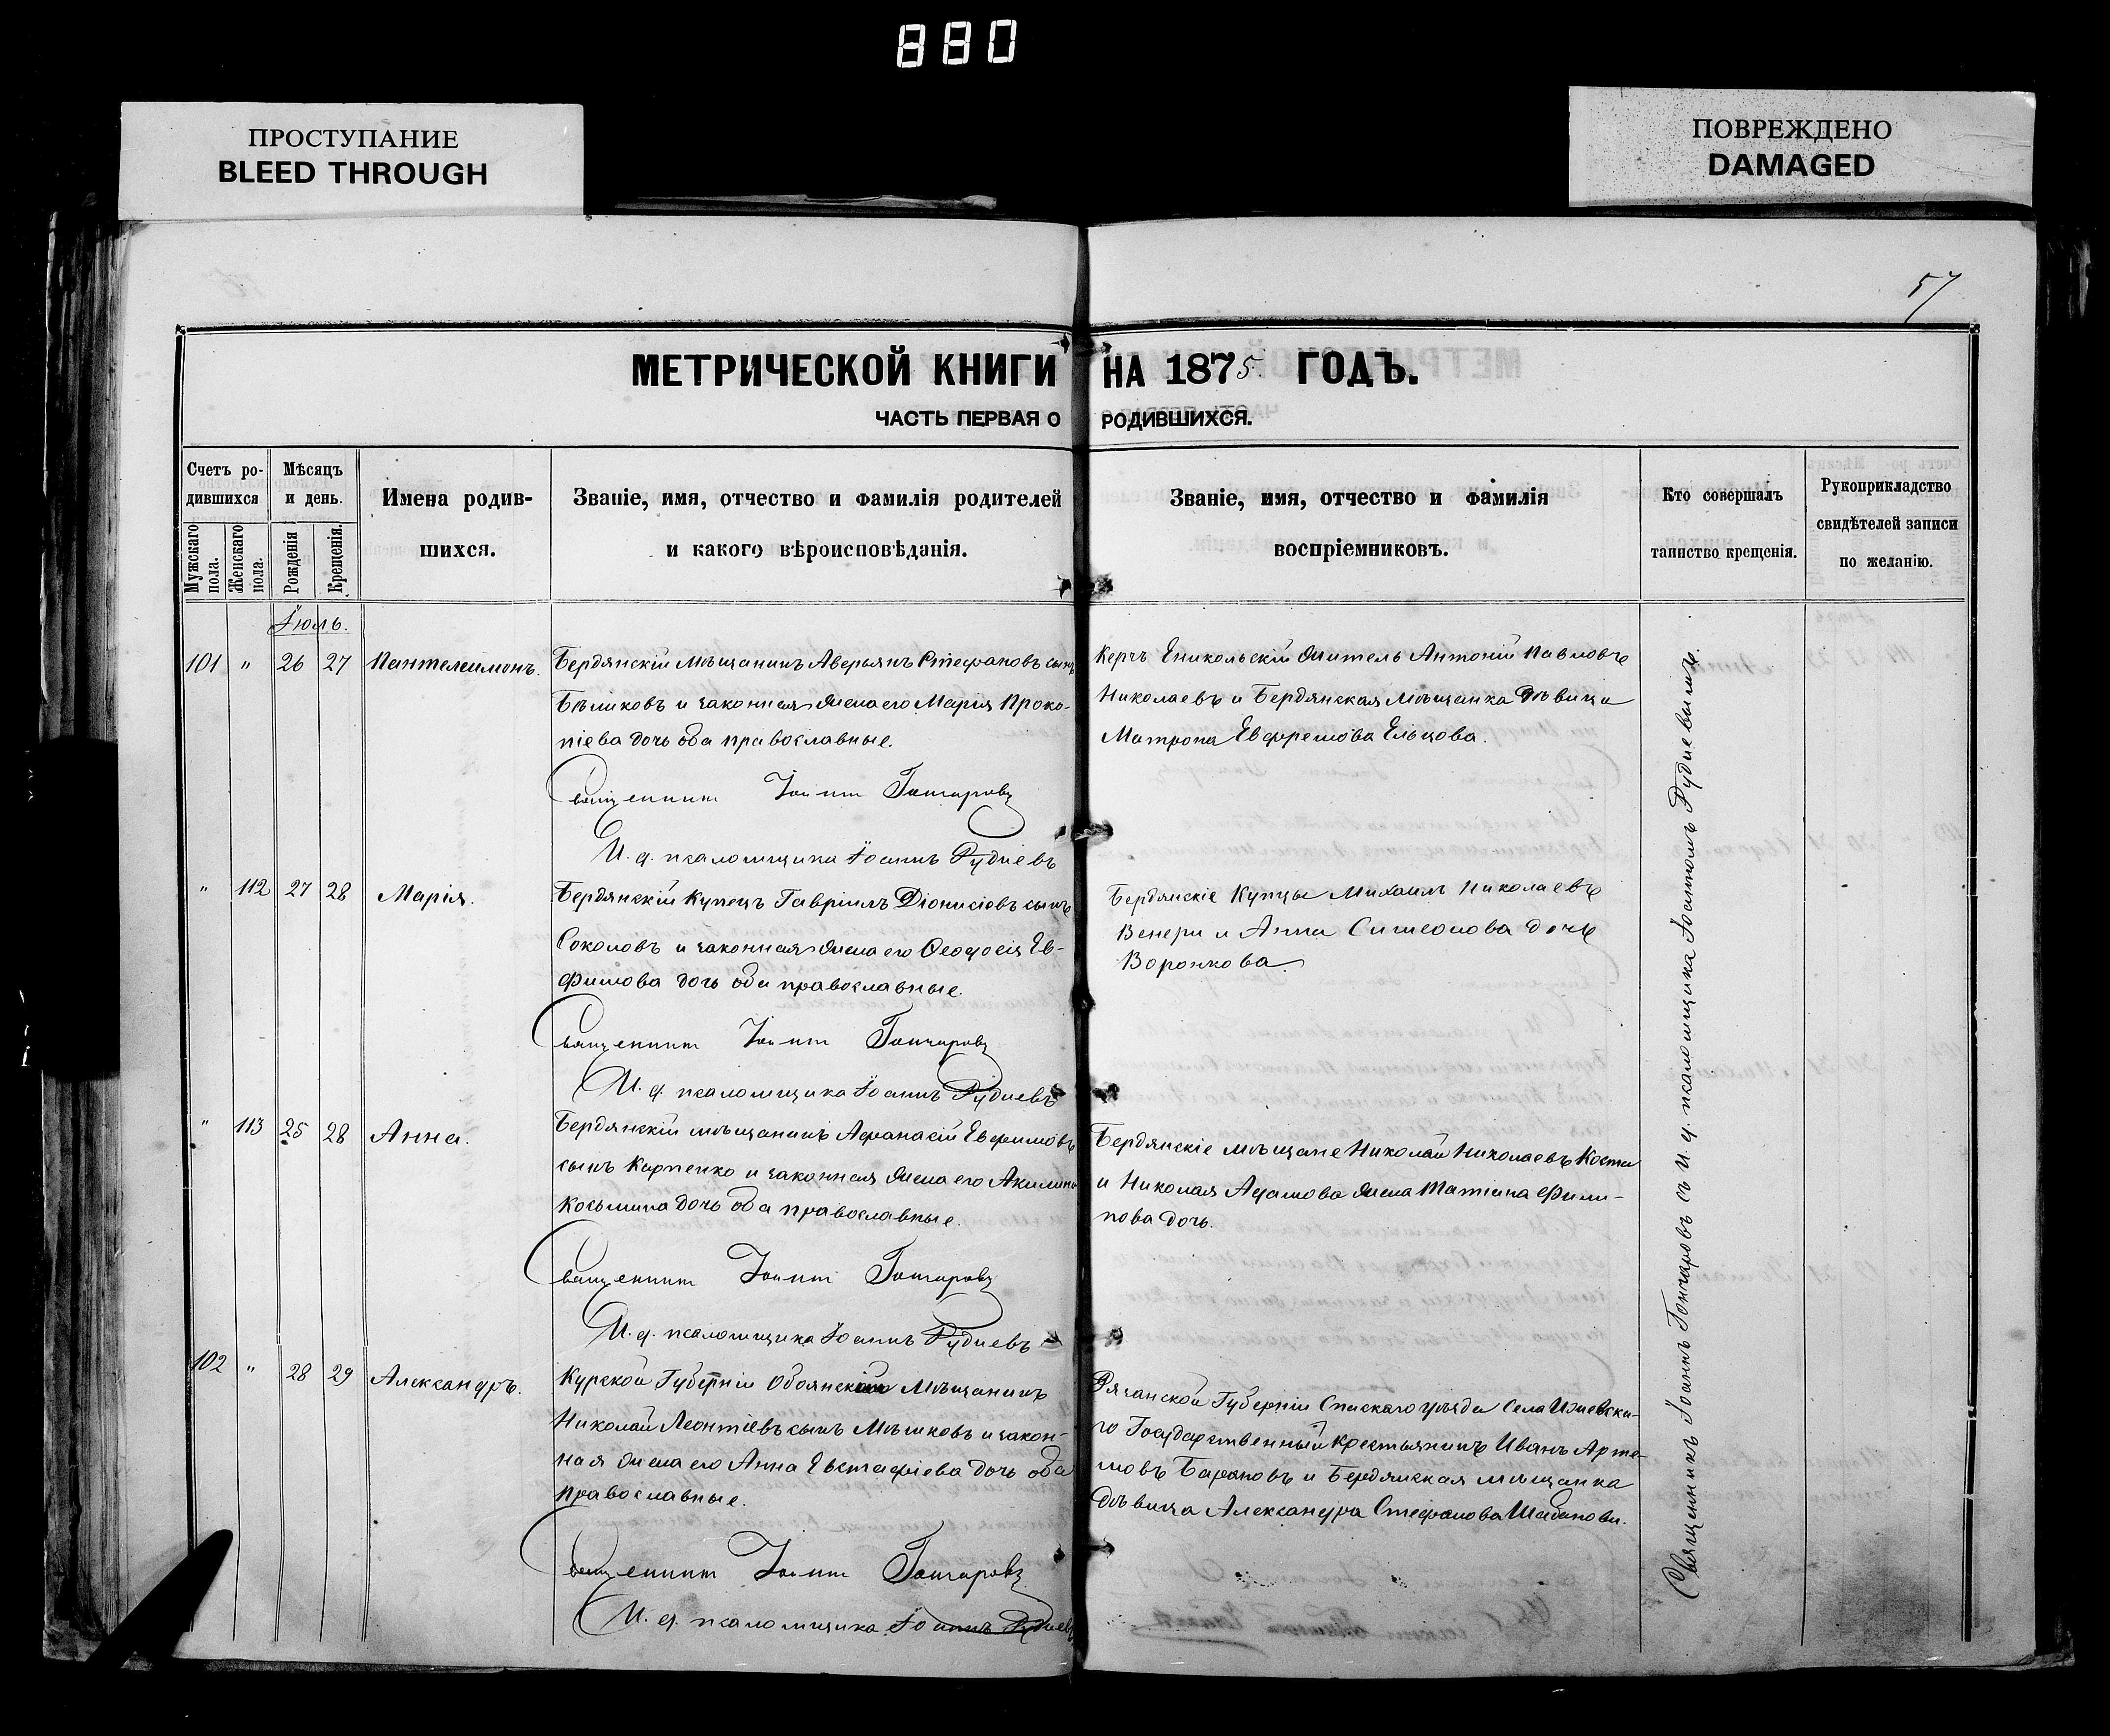 880
ПРОСТУПАНИЕ
BLEED THROUGH
ПОВРЕЖДЕНО
DAMAGED
57
МЕТРИЧЕСКОЙ КНИГИ НА 1875 ГОДЪ.
ЧАСТЬ ПЕРВАЯ О РОДИВШИХСЯ.
Счетъ ро-
дившихся
Мужскаго пола.
Женскаго пола.
Мѣсяцъ
и день.
Рожденія
Крещенія.
Имена родив-
шихся.
Званіе, имя, отчество и фамилія родителей
и какого вѣроисповѣданія.
Званіе, имя, отчество и фамилія
воспріемниковъ.
Кто совершалъ
таинство крещенія.
Рукоприкладство
свидѣтелей записи
по желанію.
Іюль.
101 " 26 27 Пантелеимонъ.
Бердянскій Мѣщанинъ Аверьянъ Стефановъ сынъ
Бѣликовъ и законная жена его Марія Проко-
піева дочь оба православные.
Священникъ Іоаннъ Гончаровъ
И. д. псаломщика Іоаннъ Рудиевъ
Керчь Еникольскій житель Антоній Павловъ
Николаевъ и Бердянская Мѣщанка Дѣвица
Матрона Ефремова Ельцова.
" 112 27 28 Марія.
Бердянскій Купецъ Гавріилъ Діонисіовъ сынъ
Соколовъ и законная жена его Феодосія Ев-
фимова дочь оба православные.
Священникъ Іоаннъ Гончаровъ
И. д. псаломщика Іоаннъ Рудиевъ
Бердянскіе Купцы Михаилъ Николаевъ
Венери и Анна Симеонова дочь
Воронкова.
" 113 25 28 Анна.
Бердянскій мѣщанинъ Афанасій Евфимовъ
сынъ Карпенко и законная жена его Акилина
Косьмина дочь оба православные.
Священникъ Іоаннъ Гончаровъ
И. д. псаломщика Іоаннъ Рудиевъ
Бердянскіе мѣщане Николай Николаевъ Коста
и Николая Адамова жена Татіана Фили-
пова дочь.
102 " 28 29 Александръ.
Курской Губерніи Обоянскій Мѣщанинъ
Николай Леонтіевъ сынъ Мѣшковъ и закон-
ная жена его Анна Евстафіева дочь оба
православные.
Священникъ Іоаннъ Гончаровъ
И. д. псаломщика Іоаннъ Рудиевъ
Рязанской Губерніи Спаскаго уѣзда Села Ижевска-
го Государственный крестьянинъ Иванъ Арте-
мовъ Барановъ и Бердянская мѣщанка
дѣвица Александра Стефанова Шабанова.
Священникъ Іоаннъ Гончаровъ съ И. д. псаломщика Іоанномъ Рудиевымъ.